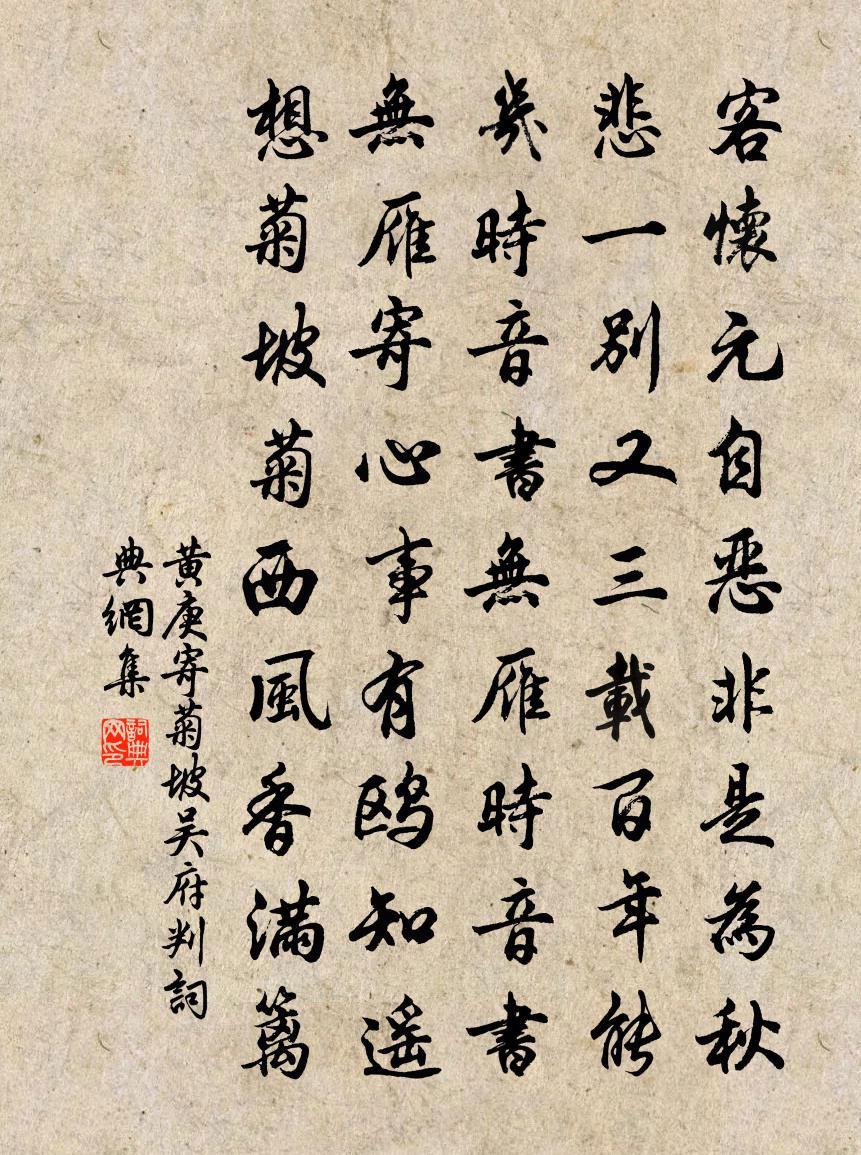 客懷元自惡非是為秋
悲一別又三載百年能
幾時音書無雁時音書
無雁寄心事有鷗知遥
想菊坡菊西風香滿籬
黄庚寄菊坡吴府判詞
典網集
詞典網印